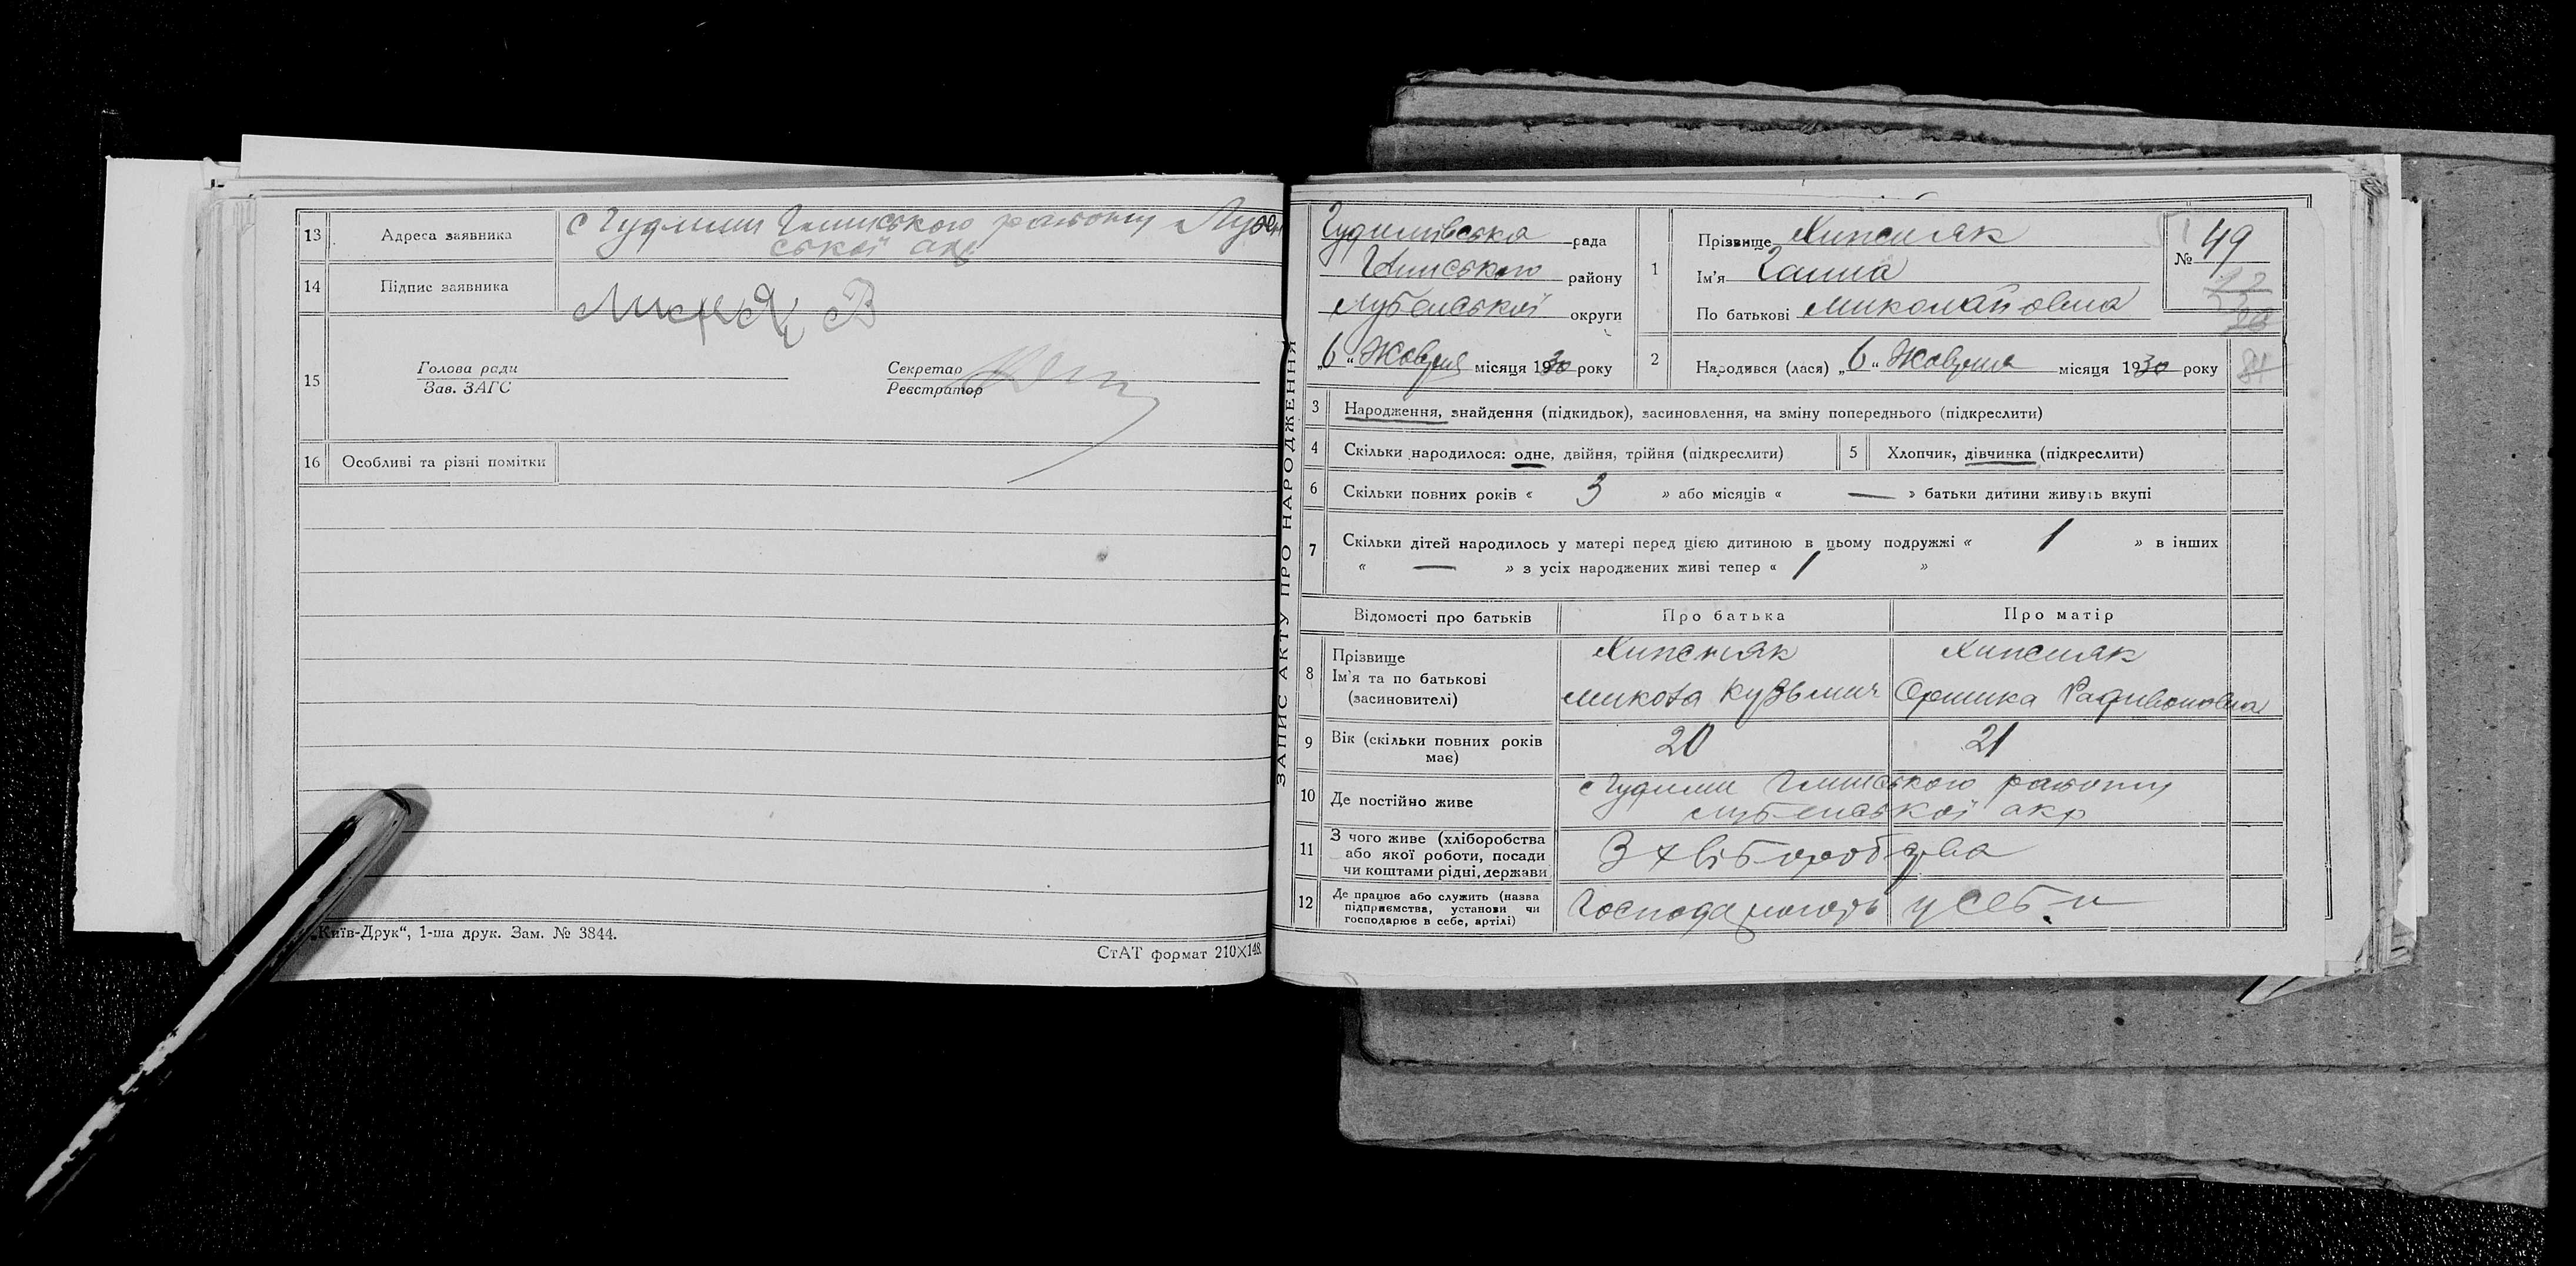 13 Адреса заявника с Гудими Глинського району Лубен
ської окр
14 Підпис заявника
15 Голова ради Секретар
Зав. ЗАГС Реєстратор
16 Особливі та різні помітки
„Київ-Друк“, 1-ша друк. Зам. № 3844.
СтАТ формат 210×148.
ЗАПИС АКТУ ПРО НАРОДЖЕННЯ
Гудимівська рада
Глинського району
Лубенської округи
„6“ Жовтня місяця 1930 року
1 Прізвище Хипсняк
Ім'я Ганна
По батькові Миколаїовна
№ 49
2 Народився (лася) „6“ Жовтня місяця 1930 року
84
3 Народження, знайдення (підкидьок), засиновлення, на зміну попереднього (підкреслити)
4 Скільки народилося: одне, двійня, трійня (підкреслити) 5 Хлопчик, дівчинка (підкреслити)
6 Скільки повних років « 3 » або місяців « — » батьки дитини живуть вкупі
7 Скільки дітей народилось у матері перед цією дитиною в цьому подружжі « 1 » в інших
« — » з усіх народжених живі тепер « 1 »
Відомості про батьків Про батька Про матір
8 Прізвище Хипсняк Хипсняк
Ім'я та по батькові
(засиновителі) Микола Кузьмич Оришка Радивоновна
9 Вік (скільки повних років
має) 20 21
10 Де постійно живе с Гудими Глинського району
Лубенської окр
11 З чого живе (хліборобства
або якої роботи, посади
чи коштами рідні, держави З хліборобства
12 Де працює або служить (назва
підприємства, установи чи
господарює в себе, артілі) Господарюють у себе